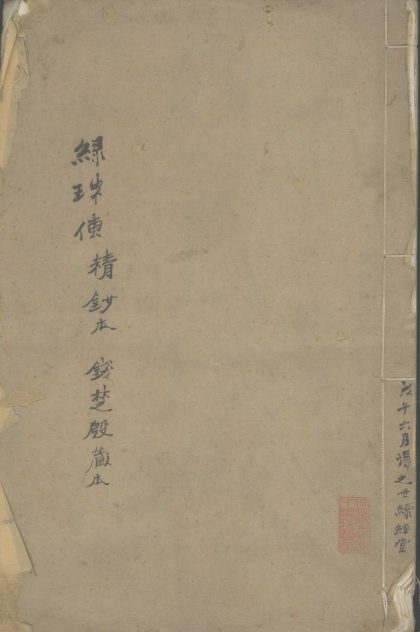 戊午六月得之經堂
綠珠傳 精鈔本 錢楚殷藏本